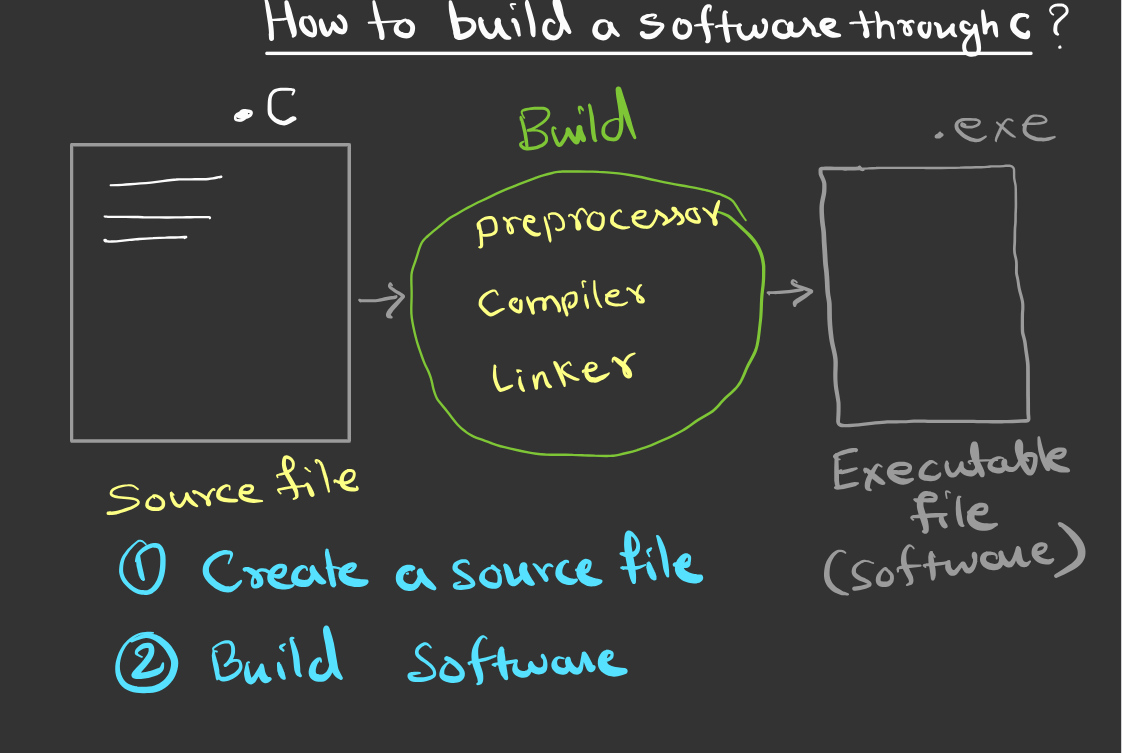 How to build a software through C ?
.C
Build
.exe
preprocessor
Compiler
Linker
Source file
Executable
file
(software)
① Create a source file
② Build Software